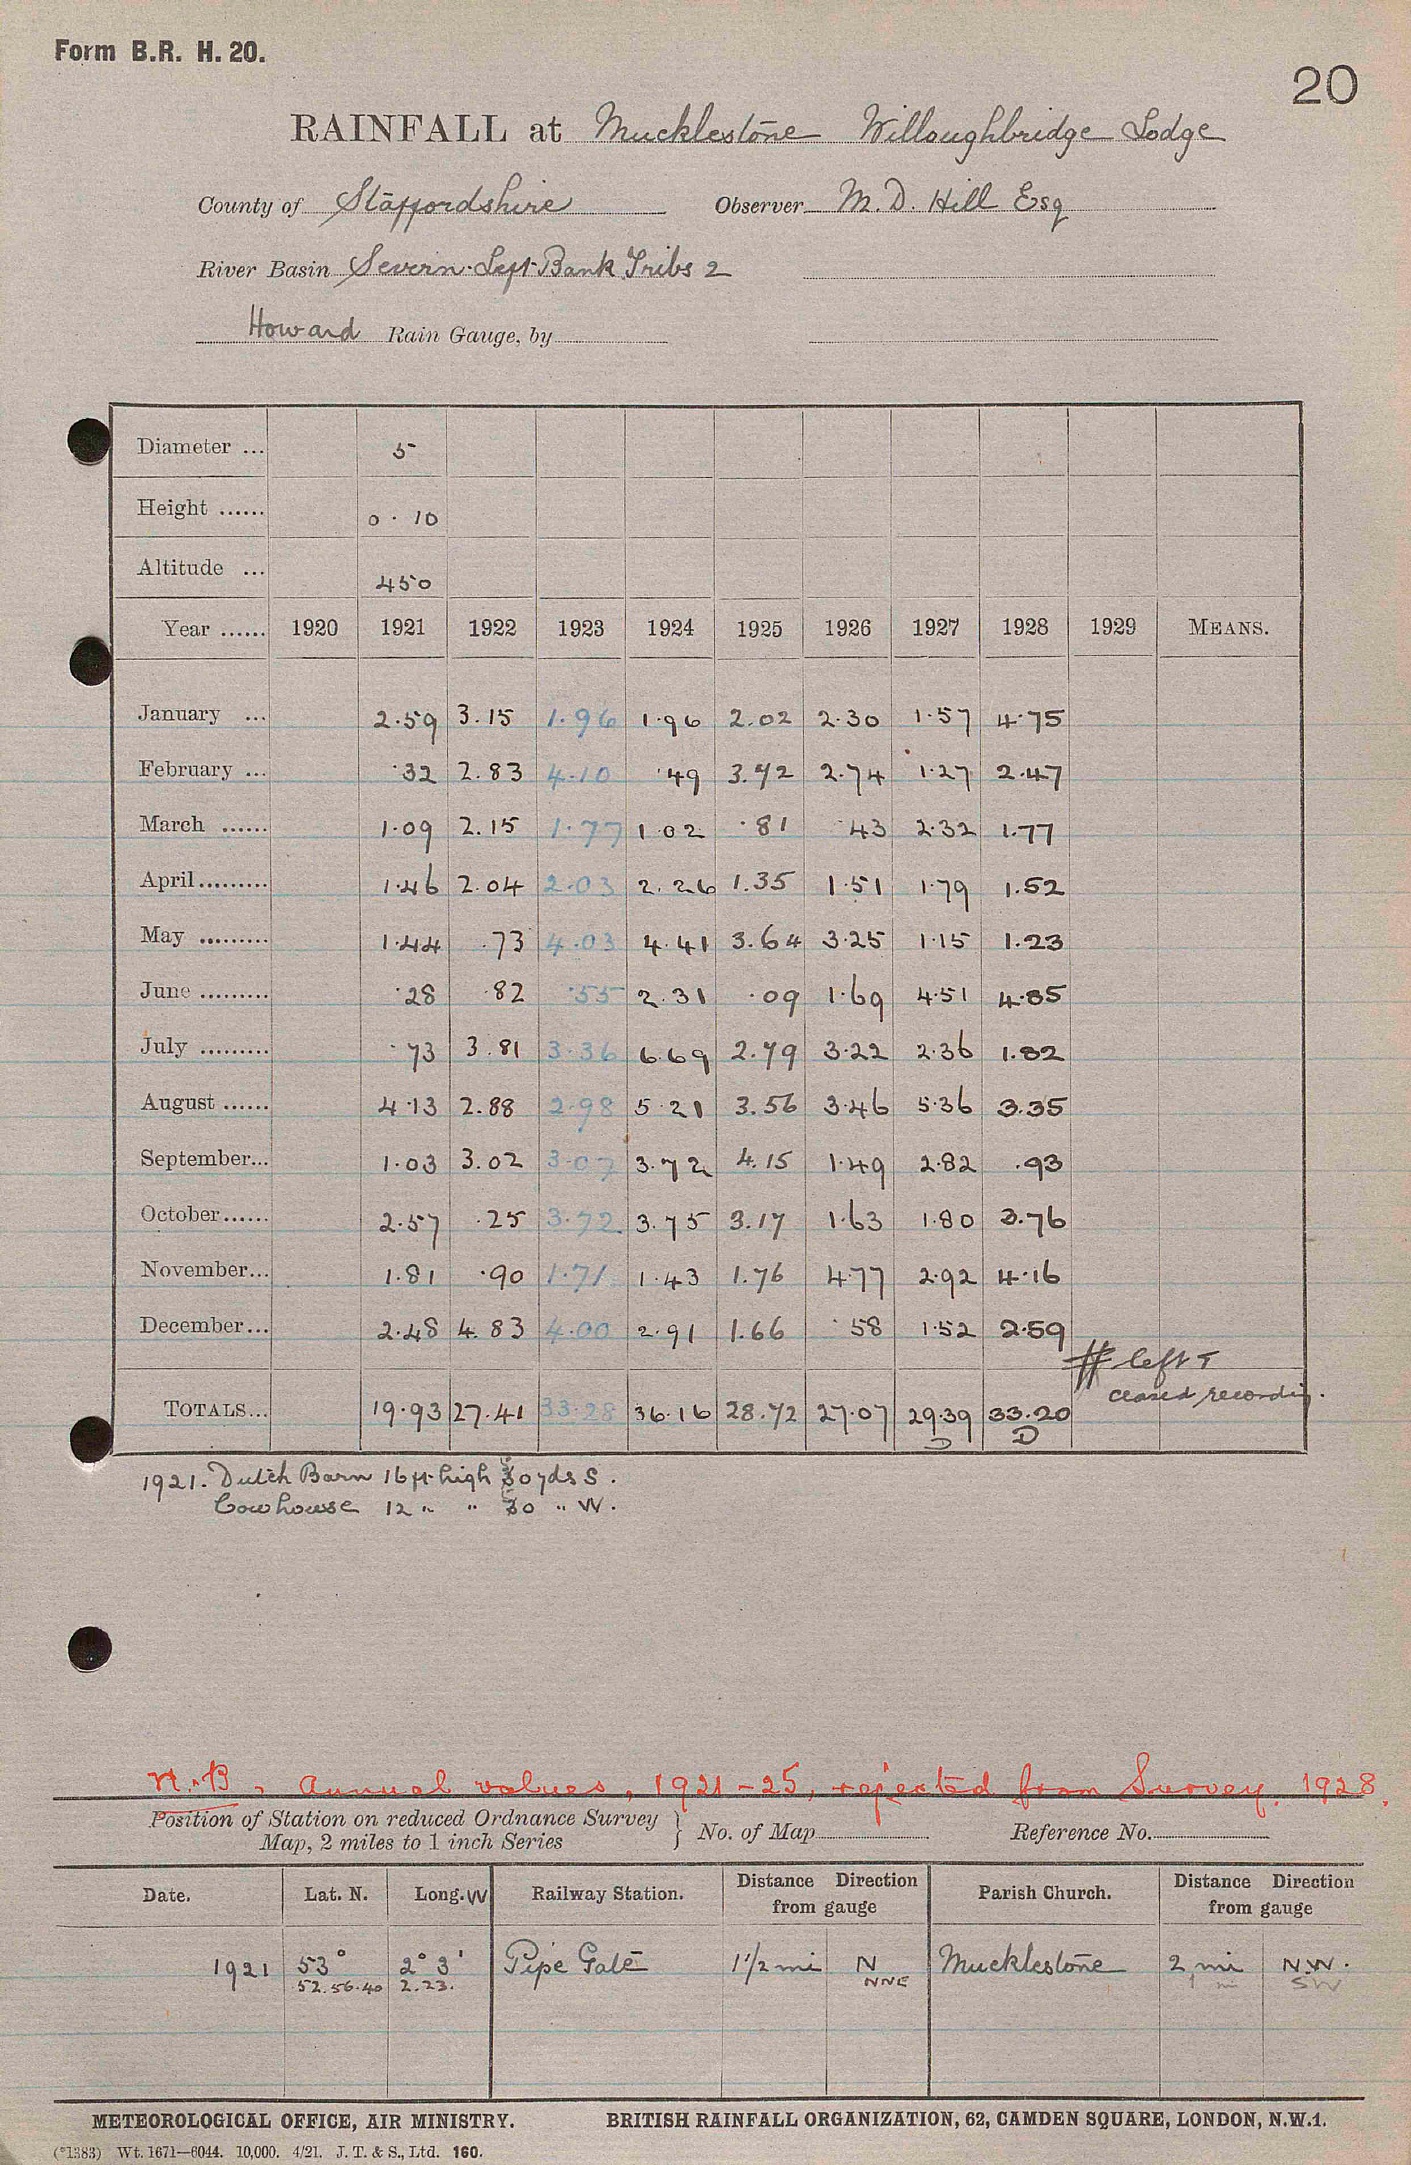 Form B.R. H. 20.
20
RAINFALL at Mucklestone Willoughbridge Lodge
County of Staffordshire Observer M. D. Hill Esq
River Basin Severn-Left-Bank Tribs 2
Howard Rain Gauge, by
Diameter ... 5
Height ...... 0 · 10
Altitude ... 450
Year ...... 1920 1921 1922 1923 1924 1925 1926 1927 1928 1929 MEANS.
January ... 2.59 3.15 1.96 1.96 2.02 2.30 1.57 4.75
February ... .32 2.83 4.10 .49 3.72 2.74 1.27 2.47
March ...... 1.09 2.15 1.77 1.02 .81 .43 2.32 1.77
April ......... 1.46 2.04 2.03 2.26 1.35 1.51 1.79 1.52
May ......... 1.44 .73 4.03 4.41 3.64 3.25 1.15 1.23
June ......... .28 .82 .55 2.31 .09 1.69 4.51 4.85
July ......... .73 3.81 3.36 6.69 2.79 3.22 2.36 1.82
August ...... 4.13 2.88 2.98 5.21 3.56 3.46 5.36 3.35
September... 1.03 3.02 3.07 3.72 4.15 1.49 2.82 .93
October...... 2.57 .25 3.72 3.75 3.17 1.63 1.80 3.76
November... 1.81 .90 1.71 1.43 1.76 4.77 2.92 4.16
December... 2.48 4.83 4.00 2.91 1.66 .58 1.52 2.59
# left &
ceased recording.
TOTALS... 19.93 27.41 33.28 36.16 28.72 27.07 29.39 33.20
D D
1921. Dutch Barn 16 ft. high 30 yds S.
Cowhouse 12 " " 30 " W.
N.B. Annual values, 1921-25, rejected from Survey. 1928.
Position of Station on reduced Ordnance Survey
Map, 2 miles to 1 inch Series } No. of Map Reference No.
Date. Lat. N. Long. W Railway Station. Distance Direction from gauge Parish Church. Distance Direction from gauge
1921 53° 2° 3' Pipe Gate 1½ mi N Mucklestone 2 mi N.W.
52.56.40 2.23. NNE 1 mi SW
METEOROLOGICAL OFFICE, AIR MINISTRY. BRITISH RAINFALL ORGANIZATION, 62, CAMDEN SQUARE, LONDON, N.W.1.
(*1383) Wt. 1671—6044. 10,000. 4/21. J. T. & S., Ltd. 160.